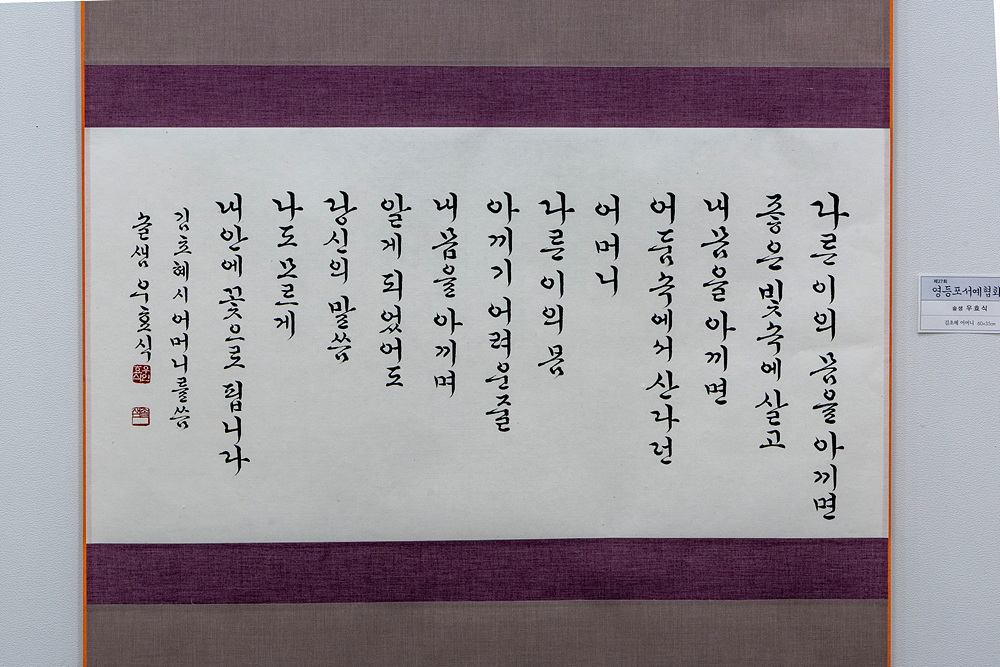 다른이의 몸을 아끼면
좋은 빛속에 살고
내 몸을 아끼면
어둠속에서 산다던
어머니
다른 이의 몸
아끼기 어려운줄
내 몸을 아끼며
알게 되었어도
당신의 말씀
나도 모르게
내안에 꽃으로 핍니다
김초혜 시 어머니를 씀
솔샘 우효식
영등포서예협회
솔샘 우효식
김초혜 어머니 60x35cm